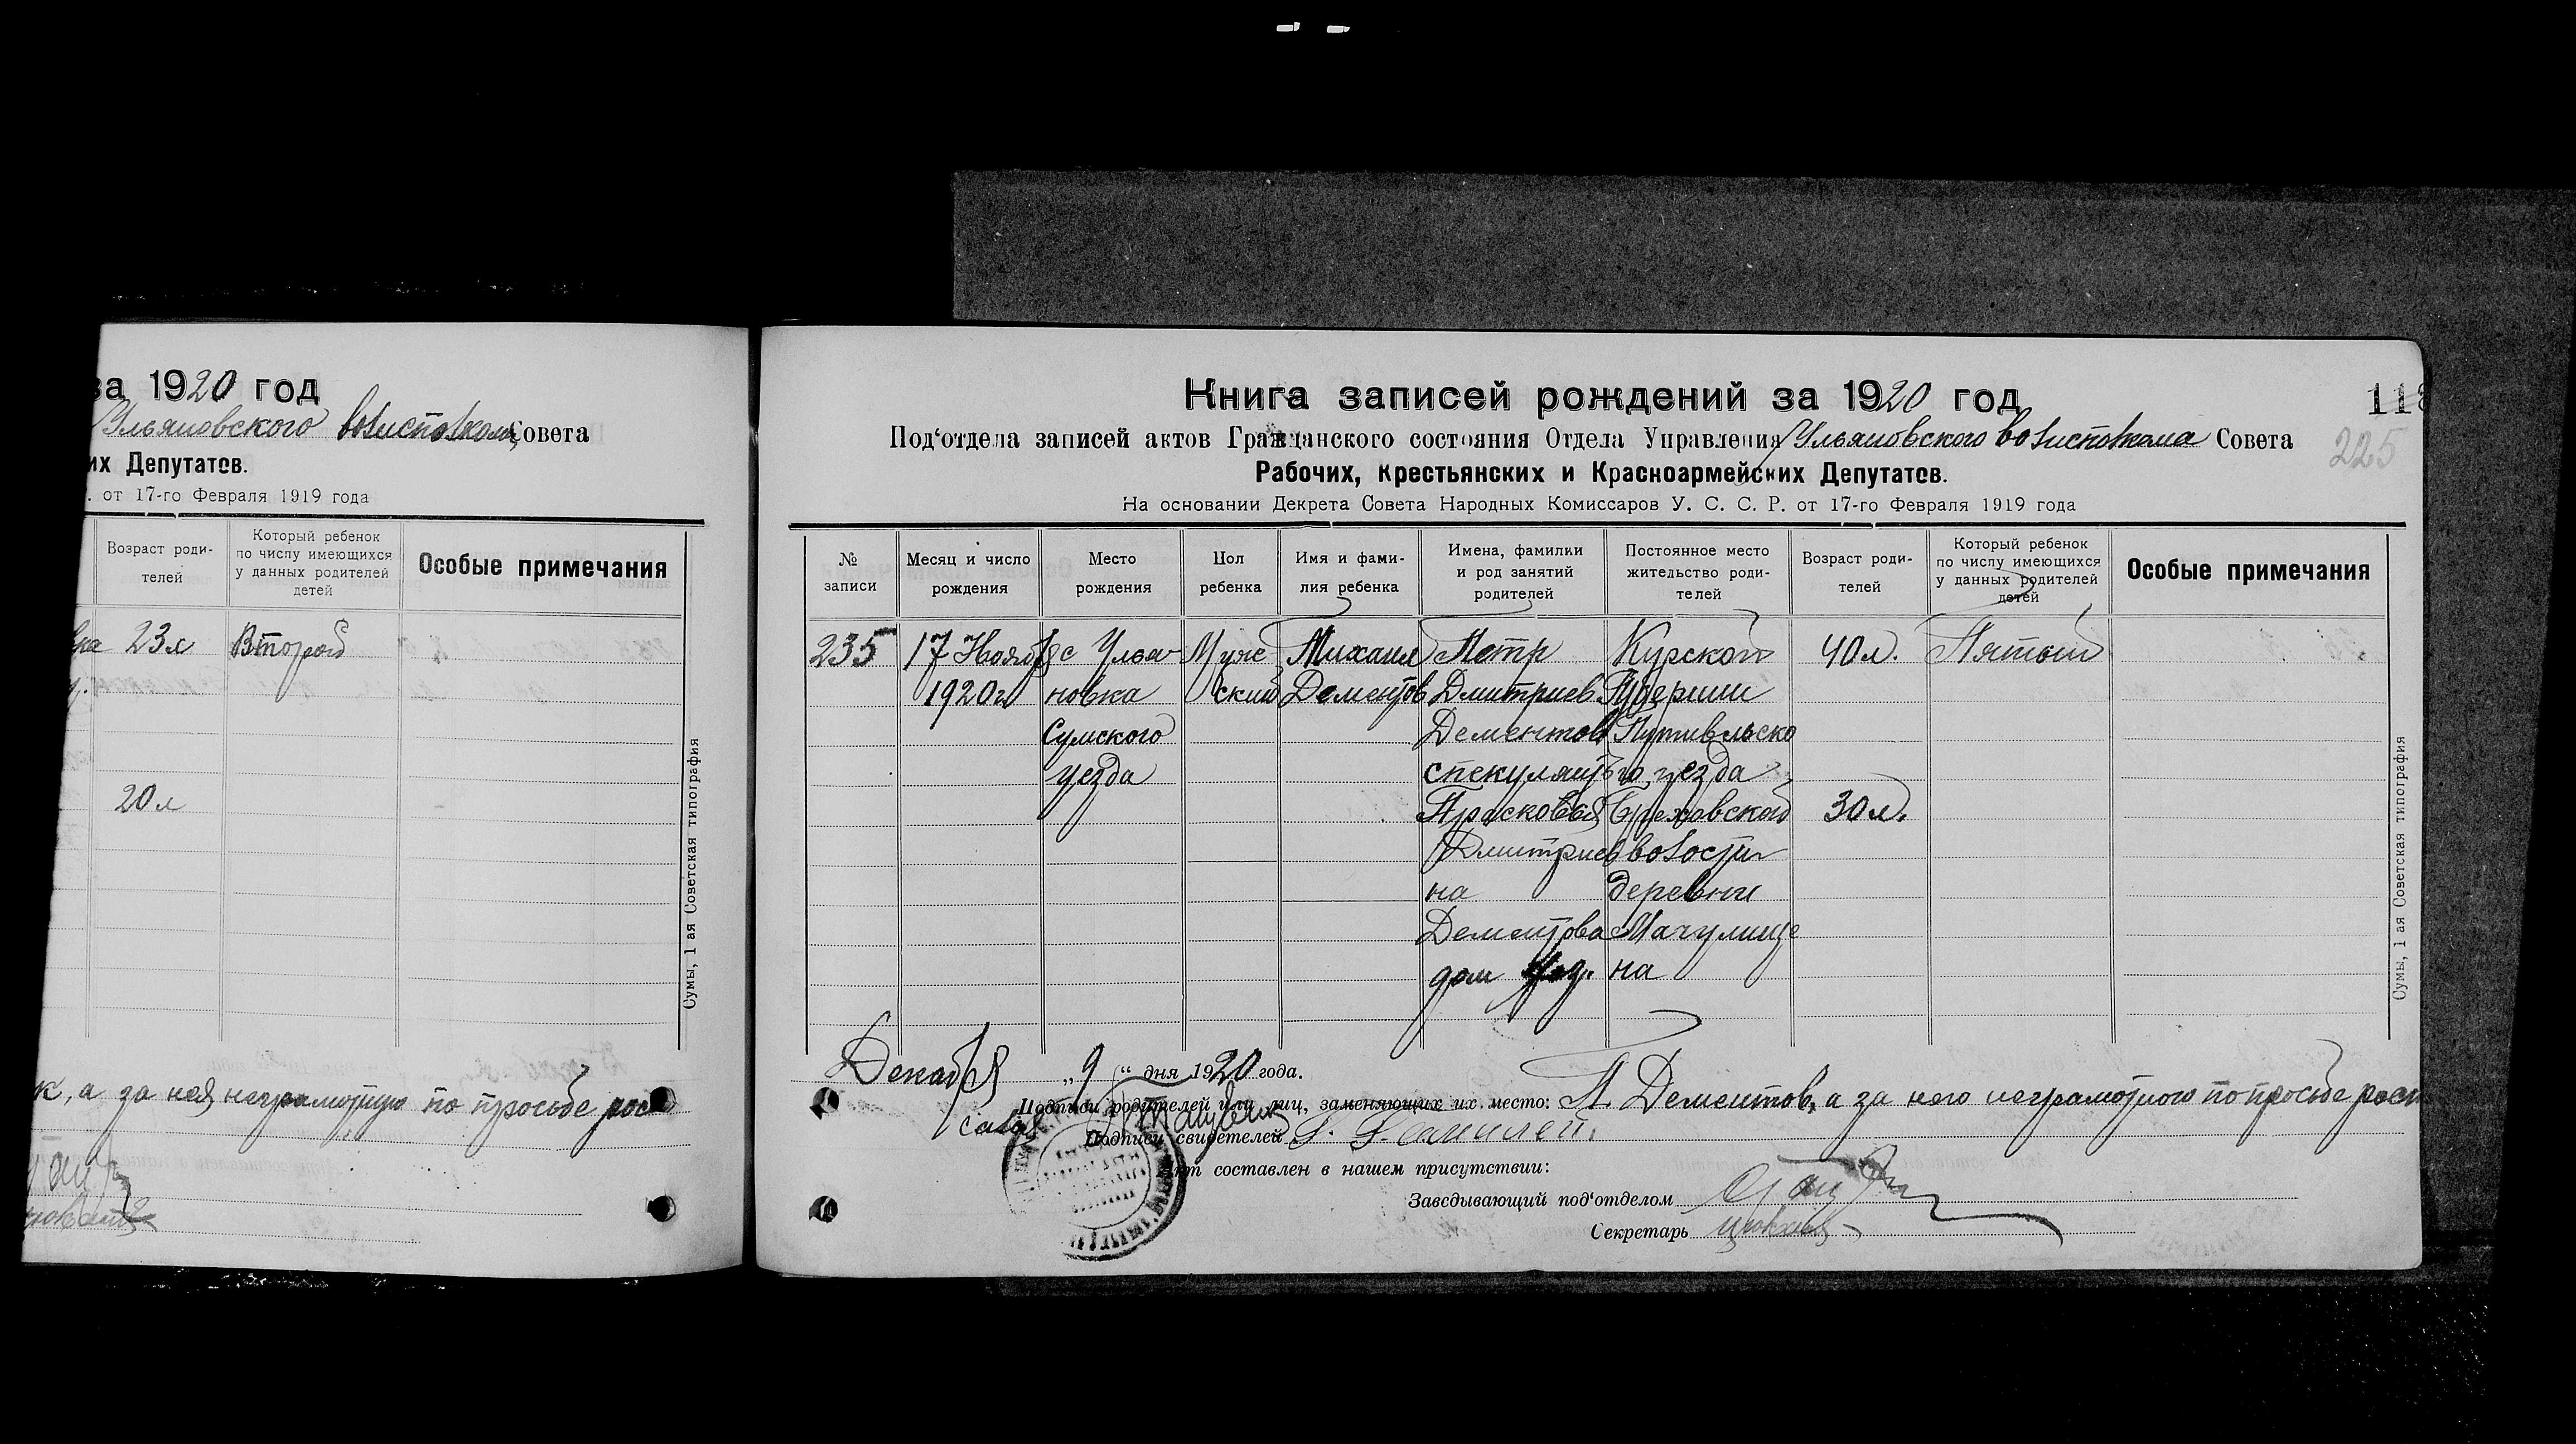 за 1920 год
Ульяновского волисполкома Совета
их Депутатов.
. от 17-го Февраля 1919 года
Возраст роди-
телей
Который ребенок
по числу имеющихся
у данных родителей
детей
Особые примечания
23 л Второй
20 л
Сумы, 1 ая Советская типография
к, а за нея неграмотную по просьбе рос
Книга записей рождений за 1920 год
118
Под‘отдела записей актов Гражданского состояния Отдела Управления Ульяновского волисполкома Совета
225
Рабочих, Крестьянских и Красноармейских Депутатов.
На основании Декрета Совета Народных Комиссаров У. С. С. Р. от 17-го Февраля 1919 года
№
записи
Месяц и число
рождения
Место
рождения
Пол
ребенка
Имя и фами-
лия ребенка
Имена, фамилии
и род занятий
родителей
Постоянное место
жительство роди-
телей
Возраст роди-
телей
Который ребенок
по числу имеющихся
у данных родителей
детей
Особые примечания
235 17 Ноября с Улья- Муже Михаил Петр Курской 40 л. Пятый
1920 г новка ский Дементов Дмитриев Губернии
Сумского Дементов Путивльско
уезда спекулянт го уезда
Прасковья Груховской 30 л.
Дмитриев волости
на деревни
Дементова Мачулище
дом на
Сумы, 1 ая Советская типография
Декабря „9“ дня 1920 года.
Подписи родителей или лиц, заменяющих их место: П. Дементов, а за него неграмотного по просьбе расп
Подписи свидетелей
Акт составлен в нашем присутствии:
Заведывающий под‘отделом
Секретарь